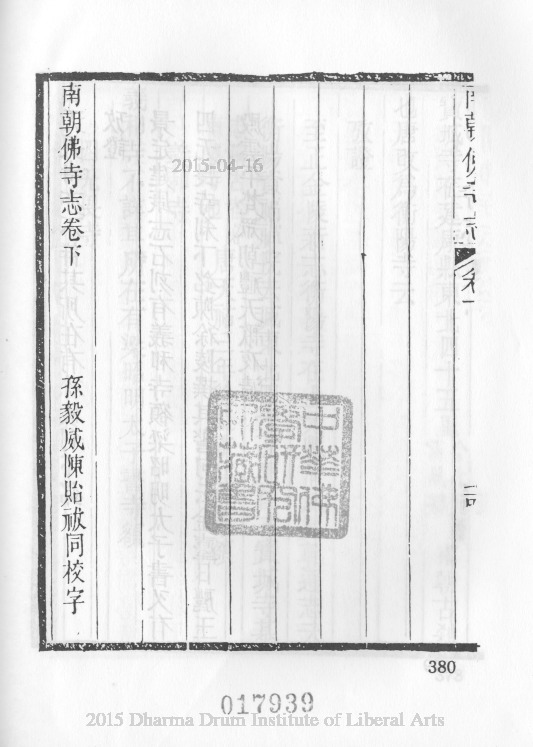 南朝佛寺志
南朝佛寺志卷下　孫毅威陳貽祓同校字
2015-04-16
中華佛學研究所藏書
380
017939
2015 Dharma Drum Institute of Liberal Arts